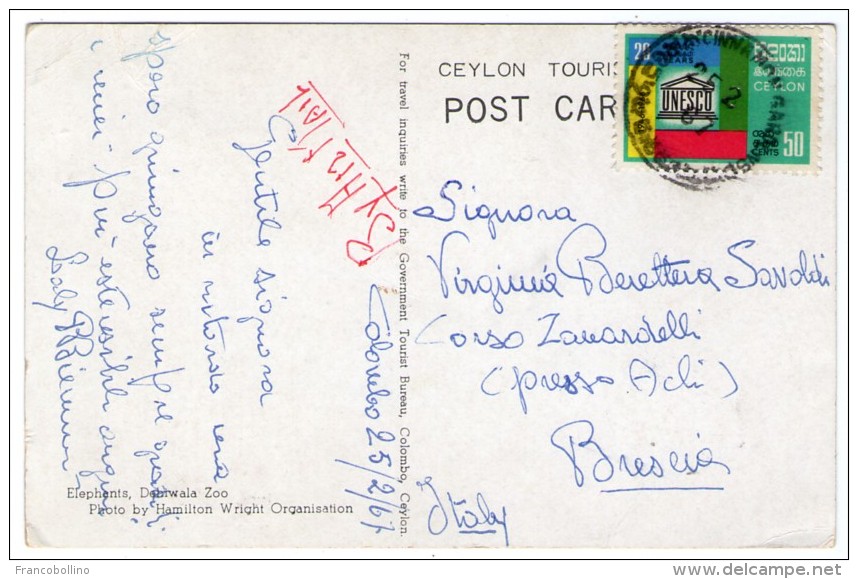 CEYLON TOURIS
POST CAR
20
YEARS
UNESCO
ලංකා
இலங்கை
CEYLON
CENTS 50
By Air Mail
Colombo 25/2/67
Gentile signora
in ritardo ma
spero giungano sempre graditi
i miei più
Signora
Virginia Berettera Savoldi
Corso Zanardelli
(presso Acli)
Brescia
Italy
For travel inquiries write to the Government Tourist Bureau, Colombo, Ceylon.
Elephants, Dehiwala Zoo
Photo by Hamilton Wright Organisation
Francobollino
delcampe.net